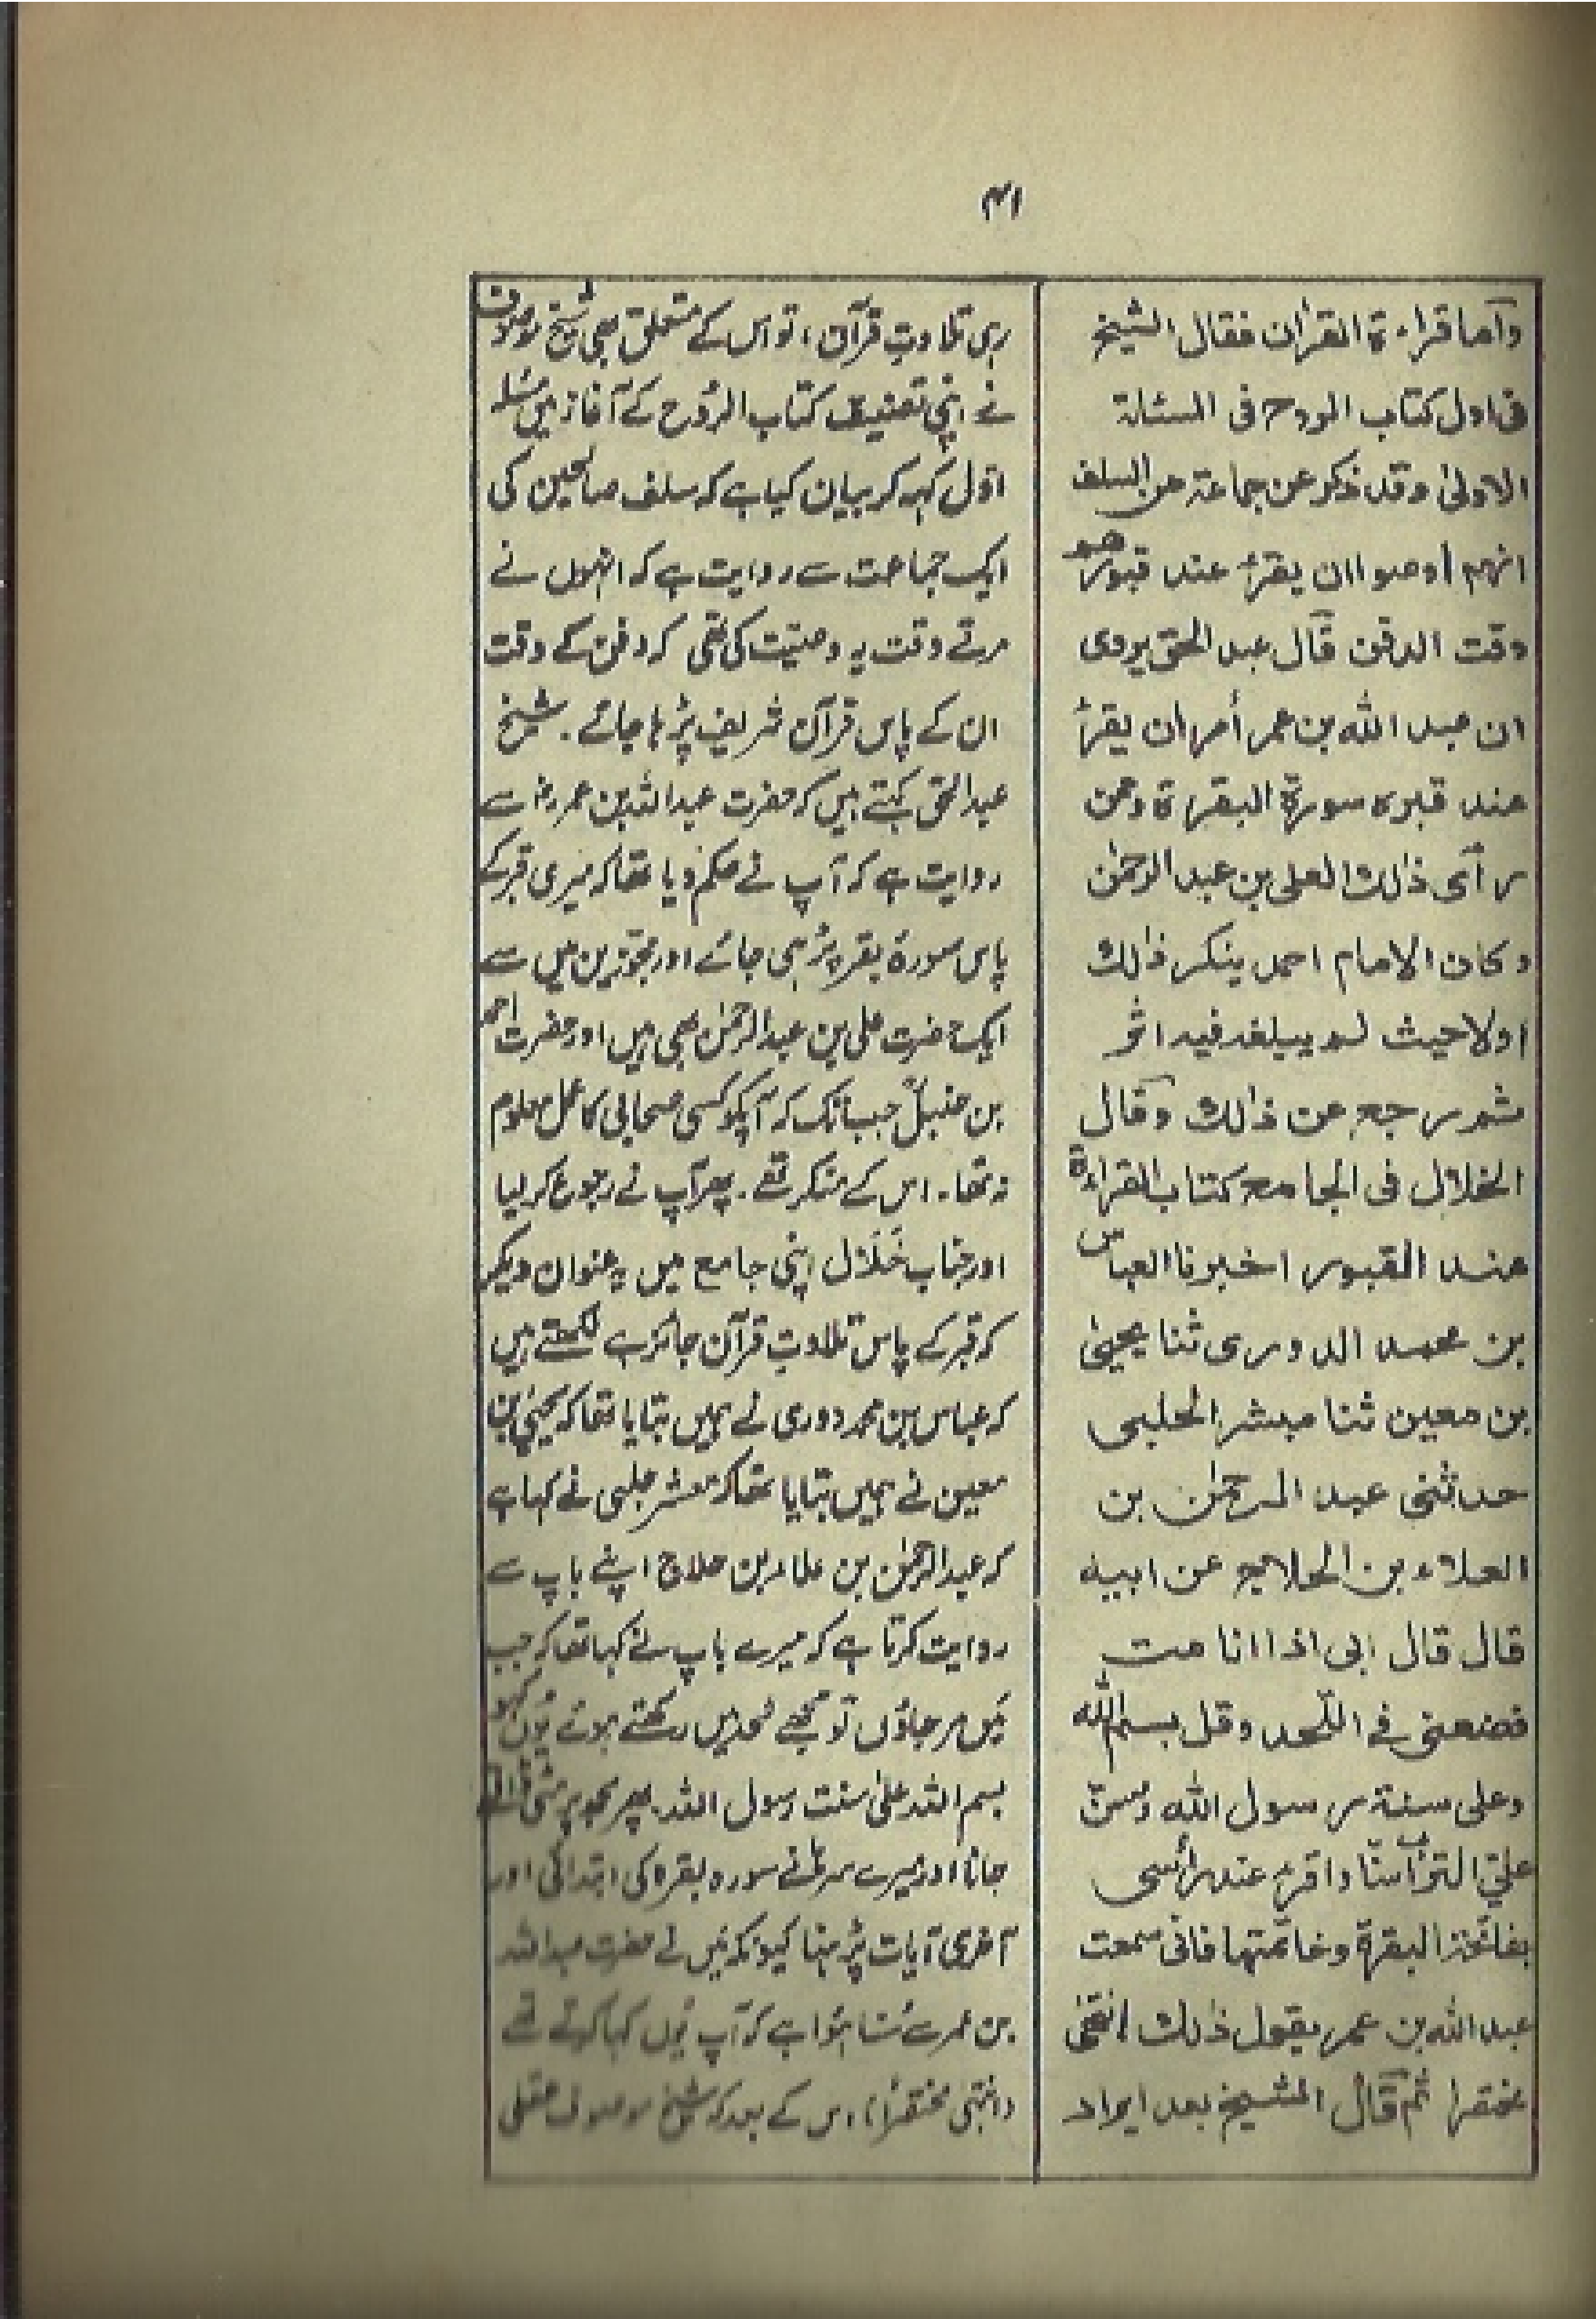 ۴۱
وأما قراءة القران فقال الشيخ
فى اول كتاب الروح فى المسئلة
الاولىٰ وقد ذكر عن جماعة من السلف
انهم اوصوا ان يقرأ عند قبورهم
وقت الدفن قال عبد الحق يروى
ان عبد الله بن عمر أمر ان يقرأ
عند قبره سورة البقرة ومن
رأى ذٰلك العلى بن عبد الرحمٰن
وكان الامام احمد ينكر ذٰلك
اولا حيث لم يبلغه فيه اثر
ثم رجع عن ذالك وقال
الخلال فى الجامع كتاب القراءة
عند القبور اخبرنا العباس
بن محمد الدورى ثنا يحيىٰ
بن معين ثنا مبشر الحلبى
حدثنى عبد الرحمٰن بن
العلاء بن الحلاج عن ابيه
قال قال ابى اذا انا مت
فضعنى فى اللّحد وقل بسم الله
وعلى سنة رسول الله وسنّ
علىّ التراب سنّا واقرء عند رأسى
بفاتحة البقرة وخاتمتها فانى سمعت
عبد الله بن عمر يقول ذٰلك انتهىٰ
مختصرا ثم قال الشيخ بعد ايراد
رہی تلاوتِ قرآن، تو اس کے متعلق بھی شیخ موصوف
نے اپنی تصنیف کتاب الرُّوح کے آغاز میں مسئلہ
اوّل کہہ کر بیان کیا ہے کہ سلف صالحین کی
ایک جماعت سے روایت ہے کہ انہوں نے
مرتے وقت یہ وصیّت کی تھی کہ دفن کے وقت
ان کے پاس قرآن شریف پڑہا جائے۔ شیخ
عبدالحق کہتے ہیں کہ حضرت عبداللہ بن عمر رضؓ سے
روایت ہے کہ آپ نے حکم دیا تھا کہ میری قبر کے
پاس سورۃ بقر پڑہی جائے اور مجوّزین میں سے
ایک حضرت علی بن عبدالرحمٰن بھی ہیں اور حضرت احمد
بن حنبلؒ جب تک کہ آپکو کسی صحابی کا عمل معلوم
نہ تھا۔ اس کے منکر تھے۔ پھر آپ نے رجوع کر لیا
اور جناب خَلّال اپنی جامع میں یہ عنوان دیکر
کہ قبر کے پاس تلاوتِ قرآن جائز ہے لکھتے ہیں
کہ عباس بن محمد دوری نے ہمیں بتایا تھا کہ یحییٰ بن
معین نے ہمیں بتایا تھا کہ مبشر حلبی نے کہا ہے
کہ عبدالرحمٰن بن علاء بن حلاج اپنے باپ سے
روایت کرتا ہے کہ میرے باپ نے کہا تھا کہ جب
مَیں مر جاؤں تو مجھے لحد میں رکھتے ہوئے یُوں کہو
بسم اللہ علیٰ سنت رسول اللہ۔ پھر مجھ پر مٹی ڈالتے
جانا اور میرے سرہانے سورہ بقرہ کی ابتدائی اور
آخری آیات پڑہنا کیونکہ مَیں نے حضرت عبداللہ
بن عمر سے سُنا ہُوا ہے کہ آپ یُوں کہا کرتے تھے
(انتہیٰ مختصراً) اس کے بعد کہ شیخ موصوف عقلی